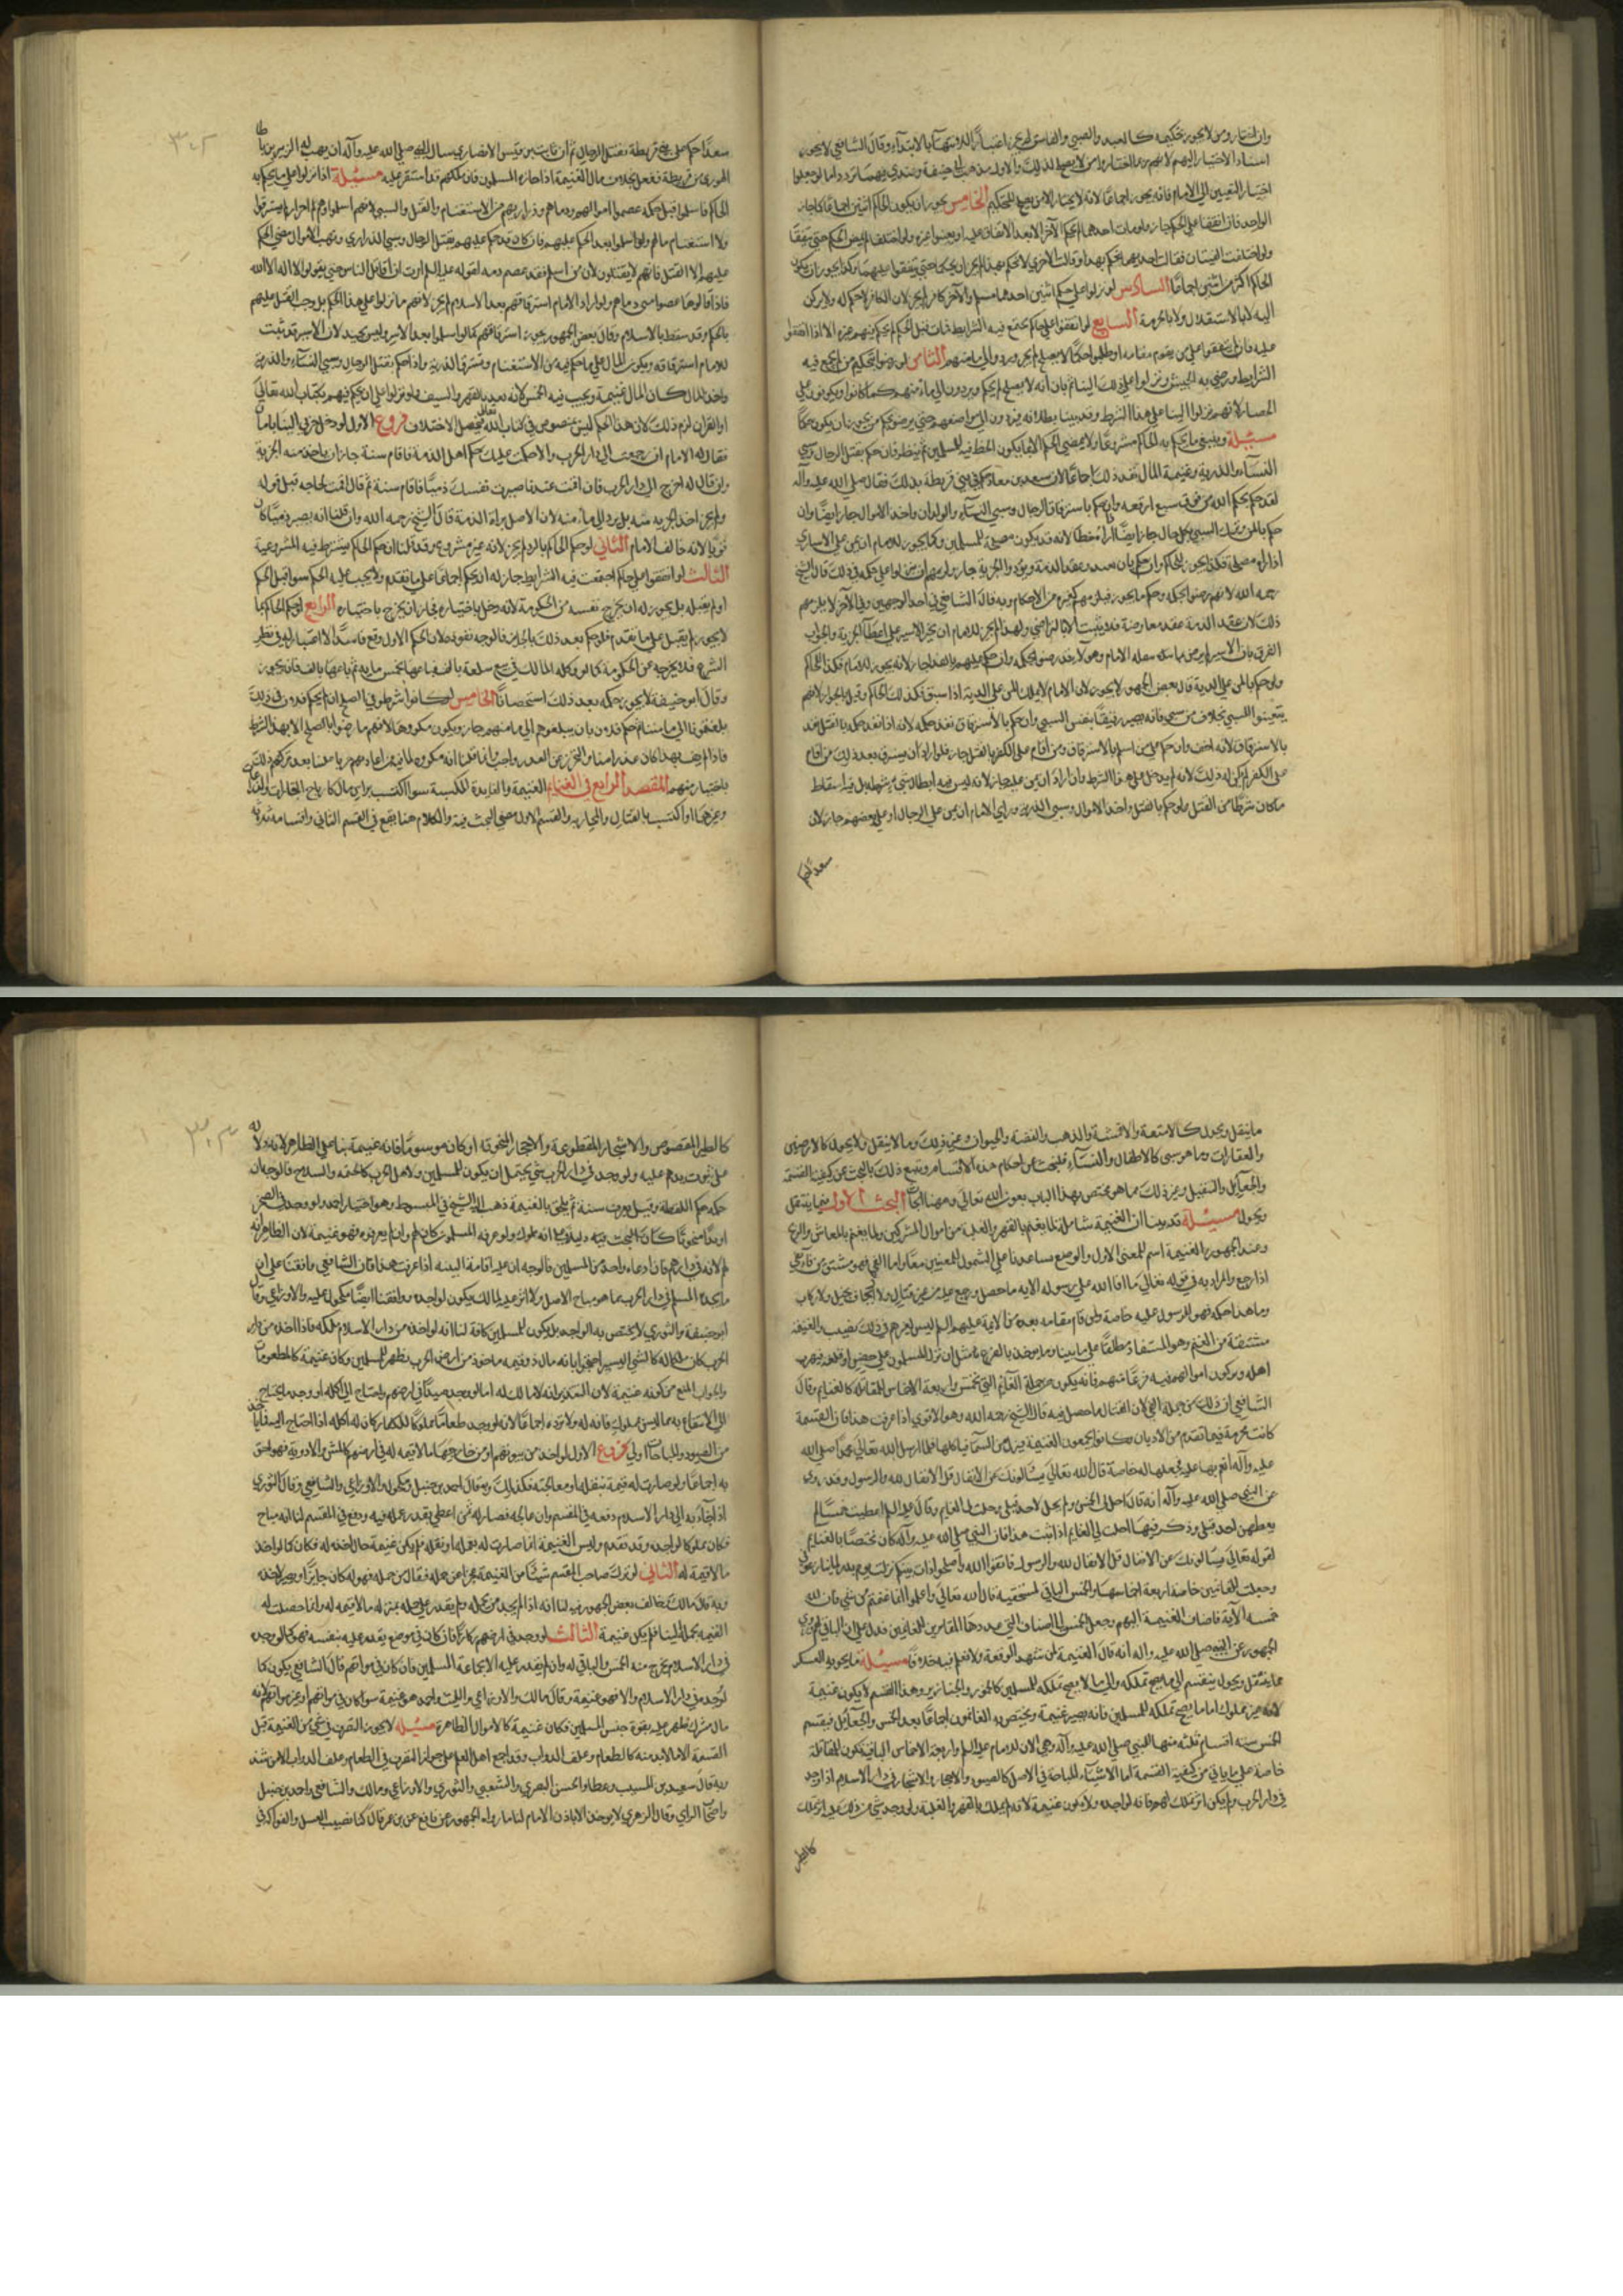 وان اختاروا من لا يجوز تحكيمه كالعبد والصبي والفاسق لم يجز اعتباراً للانتهاء بالابتداء وقال الشافعي لا يجوز
اسناد الاختيار اليهم لانهم ربما اختاروا من لا يصلح لذلك والاول مذهب ابي حنيفة وعندي فيهما تردد اما لو جعلوا
اختيار التعيين الى الامام فانه يجوز اجماعا لانه لا يختار الا من يصلح للتحكيم الخامس يجوز ان يكون الحاكم اثنين اجماعا كما جاز
الواحد فان اتفقا على الحكم جاز ولو مات احدهما لم يحكم الآخر الا بعد الاتفاق عليه او يعينوا غيره ولو اختلفا لم يمض الحكم حتى يتفقا
ولو اختلفت الفئتان فقالت احديهما يحكم بهذا وقالت الاخرى لا يحكم بهذا لم يجز ان يحكم حتى يتفقوا عليهما وكذا يجوز ان يكون
الحاكم اكثر من اثنين اجماعا السادس لو نزلوا على حكم اثنين احدهما مسلم والآخر كافر لم يجز لان الكافر لا حكم له ولا يركن
اليه لا بالاستقلال ولا بالجزئية السابع لو اتفقوا على حاكم تجتمع فيه الشرايط فمات قبل الحكم لم يحكم فيهم غيره الا اذا اتفقوا
عليه فان لم يتفقوا على من يقوم مقامه او طلبوا حكما لا يصلح لم يجز ويردوا الى مأمنهم الثامن لو رضوا بتحكيم من لم يجتمع فيه
الشرايط ورضي به الجيش ونزلوا على ذلك الينا ثم بان انه لا يصلح لم يحكم ويردون الى مأمنهم كما كانوا ويكونون على
الحصار لانهم نزلوا الينا على هذا الشرط وقد بينا بطلانه فيردون الى مواضعهم حتى يرضوا بحكم من يجوز ان يكون حكما
مسئلة وينبغي ما يحكم به الحاكم مشروعا ولا يمضي الحكم الا بما يكون الحظ فيه للمسلمين ثم ينظر فان حكم بقتل الرجال وسبي
النساء والذرية وغنيمة المال نفذ ذلك اجماعا لان سعد بن معاذ حكم في بني قريظة بذلك فقال صلى الله عليه وآله
لقد حكم بحكم الله من فوق سبع ارقعة وان حكم باسترقاق الرجال وسبي النساء والولدان واخذ الاموال جاز ايضا وان
حكم بالمن وترك السبي بكل حال جاز ايضا اذا رآه حظا لانه قد يكون مصلحة للمسلمين وكما يجوز للامام ان يمن على الاسارى
اذا رآه مصلحة فكذا يجوز للحاكم وان حكم بان يعقد عقد الذمة ويؤدوا الجزية جاز ولزمهم ان ينزلوا على حكمه في ذلك قال الشيخ
رحمه الله لانهم رضوا بحكمه وحكم ما يجوز فيلزمهم كغيره من الاحكام وبه قال الشافعي في احد الوجهين وفي الآخر لا يلزمهم
ذلك لان عقد الذمة عقد معاوضة فلا يثبت الا بالتراضي ولهذا لم يجز للامام ان يجبر الاسير على اعطاء الجزية والجواب
الفرق بان الاسير لم يرض بما يفعله الامام وهؤلاء قد رضوا بحكمه وان حكم عليهم بالفداء جاز لانه يجوز للامام فكذا للحاكم
ولو حكم بالمن على الذرية قال بعض الجمهور لا يجوز لان الامام لا يملك المن على الذرية اذا سبي فكذلك الحاكم وقيل بالجواز لانهم
يتعينوا للسبي بخلاف من سبي فانه يصير رقيقا بنفس السبي وان حكم بالاسترقاق نفذ حكمه لانه اذا نفذ حكمه بالقتل نفذ
بالاسترقاق لانه اخف وان حكم على من اسلم بالاسترقاق ومن اقام على الكفر بالقتل جاز فلو اراد ان يسترق بعد ذلك من اقام
على الكفر لم يكن له ذلك لانه لم يدخل على هذا الشرط وان اراد ان يمن عليه جاز لانه ليس فيه ابطال شيء شرطه بل فيه اسقاط
ما كان شرطا من القتل ولو حكم بالقتل واخذ الاموال وسبي الذرية ورأى الامام ان يمن على الرجال او على بعضهم جاز لان
سعدا حكم
٣٠٢
سعدا حكم على بني قريظة بقتل الرجال ثم ان ثابت بن قيس الانصاري سأل النبي صلى الله عليه وآله ان يهب له الزبير بن باطا
اليهودي من قريظة ففعل بخلاف مال الغنيمة اذا حازه المسلمون فان ملكهم قد استقر عليه مسئلة اذا نزلوا على ما يحكم به
الحاكم فاسلموا قبل حكمه عصموا اموالهم ودماءهم وذراريهم من الاستغنام والقتل والسبي لانهم اسلموا وهم احرار لم يسترقوا
ولا استغنام مالهم ولو اسلموا بعد الحكم عليهم فان كان قد حكم عليهم بقتل الرجال وسبي الذراري ونهب الاموال مضى الحكم
عليهم الا القتل فانهم لا يقتلون لان من اسلم فقد عصم دمه لقوله عليه السلم امرت ان اقاتل الناس حتى يقولوا لا اله الا الله
فاذا قالوها عصموا مني دماءهم ولو اراد الامام استرقاقهم بعد الاسلام لم يجز لانهم ما نزلوا على هذا الحكم بل وجب القتل عليهم
بالحكم وقد سقط بالاسلام وقال بعض الجمهور يجوز استرقاقهم كما لو اسلموا بعد الاسر وليس بجيد لان الاسير قد ثبت
للامام استرقاقه ويكون المال على ما حكم فيه من الاستغنام وتسترق الذرية واذا حكم بقتل الرجال وسبي النساء والذرية
واخذ المال كان المال غنيمة ويجب فيه الخمس لانه اخذ بالقهر والسيف ولو نزلوا على ان يحكم فيهم بكتاب الله تعالى
او القرآن لزم ذلك لان هذا الحكم ليس بمنصوص في كتاب الله تعالى فيحصل الاختلاف فروع الاول لو دخل حربي الينا بامان
فقال له الامام ان رجعت الى دار الحرب والا حكمت عليك حكم اهل الذمة فاقام سنة جاز ان ياخذ منه الجزية
وان قال له اخرج الى دار الحرب فان اقمت عندنا صيرت نفسك ذميا فاقام سنة ثم قال اقمت لحاجة قبل قوله
ولم يجز اخذ الجزية منه بل يرد الى مأمنه لان الاصل براءة الذمة قال الشيخ رحمه الله وان قلنا انه يصير ذميا كان
قويا لانه خالف الامام الثاني لو حكم الحاكم بالرد لم يجز لانه غير مشروع وقد قلنا ان حكم الحاكم يشترط فيه المشروعية
الثالث لو اتفقوا على حاكم اجتمعت فيه الشرايط جاز له ان يحكم اجماعا على ما تقدم ولا يجب عليه الحكم سواء قبل الحكم
او لم يقبله بل يجوز له ان يخرج نفسه من الحكومة لانه دخل باختياره فجاز ان يخرج باختياره الرابع لو حكم الحاكم بما
لا يجوز لم يقبل على ما تقدم فلو حكم بعد ذلك بالجائز فالوجه نفوذه لان الحكم الاول وقع فاسدا لا اعتبار له في نظر
الشرع فلا يخرجه عن الحكومة كما لو وكله المالك في بيع سلعة بالف فباعها بخمس مائة ثم باعها بالف فانه يجوز
وقال ابو حنيفة لا يجوز حكمه بعد ذلك استحسانا الخامس لو كانوا شرطوا في الصلح ان لم يحكم فلان في ذلك
بلغتمونا الى مأمننا فحكم فلان بان يبلغوهم الى مأمنهم جاز ويكون مكروها لانهم ما رضوا بالصلح الا بهذا الشرط
باختيار منهم المقصد الرابع في الغنائم الغنيمة والفايدة المكتسبة سواء اكتسب براس مال كارباح التجارات والزراعات
وغيرهما او اكتسب بالقتال والمحاربة والقسم الاول مضى البحث فيه والكلام هنا يقع في القسم الثاني واقسامه ثلثة
ما ينقل ويحول كالامتعة والاقمشة والذهب والفضة والحيوان وغير ذلك وما لا ينقل ولا يحول كالارضين
والعقارات وما هو سبي كالاطفال والنساء فلنبحث عن احكام هذه الاقسام ونتبع ذلك بالبحث عن كيفية القسمة
والجعايل والتنفيل وغير ذلك مما هو مختص بهذا الباب بعون الله تعالى وههنا ابحاث البحث الاول فيما ينقل
ويحول مسئلة قد بينا ان الغنيمة شاملة لما يغنم بالقهر والغلبة من اموال المشركين ولما يغنم بالمعاش والربح
وعند الجمهور الغنيمة اسم للمعنى الاول والوضع يساعدنا على الشمول للمعنيين معا واما الفي فهو مشتق من فاء يفيء
اذا رجع والمراد به في قوله تعالى ما افاء الله على رسوله الآية ما حصل ورجع عليه من غير قتال ولا ايجاف بخيل ولا ركاب
وما هذا حكمه فهو للرسول عليه خاصة ولمن قام مقامه بعده من الائمة عليهم السلم ليس لغيرهم في ذلك نصيب والغنيمة
مشتقة من الغنم وهو المستفاد مطلقا على ما بيناه وما يوخذ بالفزع مثل ان ينزل المسلمون على حصن او قلعة فيهرب
اهله ويتركون اموالهم فيه فزعا منهم فانه يكون من جملة الغنائم التي تخمس واربعة الاخماس للمقاتلة كالغنايم وقال
الشافعي ان ذلك من جملة الفيء لان القتال ما حصل فيه قال الشيخ رحمه الله وهو الاقوى اذا عرفت هذا فان الغنيمة
كانت محرمة فيما تقدم من الاديان وكانوا يجمعون الغنيمة فينزل من السماء نار فتاكلها فلما ارسل الله تعالى محمدا صلى الله
عليه وآله انعم بها عليه فجعلها له خاصة قال الله تعالى يسألونك عن الانفال قل الانفال لله والرسول وقد روي
عن النبي صلى الله عليه وآله انه قال احل لي الخمس ولم يحل لاحد قبلي وحلت لي الغنايم وقال عليه السلم اعطيت خمسا لم
يعطهن احد قبلي وذكر فيها احلت لي الغنايم اذا ثبت هذا فان النبي صلى الله عليه وآله كان مختصا بالغنايم
لقوله تعالى يسألونك عن الانفال قل الانفال لله والرسول فاتقوا الله واصلحوا ذات بينكم نزلت يوم بدر لما تنازعوا في
وجعلت للغانمين خاصة اربعة اخماسها والخمس الباقي لمستحقيه قال الله تعالى واعلموا انما غنمتم من شيء فان لله
خمسه الآية فاضاف الغنيمة اليهم وجعل الخمس للاصناف التي عددها المغايرين للغانمين فدل على ان الباقي لهم وروى
الجمهور عن النبي صلى الله عليه واله انه قال الغنيمة لمن شهد الوقعة ولا نعلم فيه خلافا مسئلة ما يحويه العسكر
مما ينقل ويحول ينقسم الى ما يصح تملكه والى ما لا يصح تملكه للمسلمين كالخمور والخنازير وهذا القسم لا يكون غنيمة
لانه غير مملوك اما ما يصح تملكه للمسلمين فانه يصير غنيمة ويختص به الغانمون اجماعا بعد الخمس والجعايل فيقسم
الخمس ستة اقسام ثلثة منها للنبي صلى الله عليه وآله وهي الان للامام عليه السلم واربعة الاخماس الباقية تكون للمقاتلة
خاصة على ما ياتي من كيفية القسمة اما الاشياء المباحة في الاصل كالصيود والاحجار والاشجار في دار الاسلام اذا وجد
في دار الحرب ولم يكن اثر تملك لهم فانه لواجده ولا يكون غنيمة لانه لم يملك بالقهر والغلبة ولو وجد شيء من ذلك عليه اثر تملك
كالطير
٣٠٣
كالطير المقصوص والاشجار المقطوعة والاحجار المنحوتة او كان موسوما فانه غنيمة بناء على الظاهر لانه دلالة
على ثبوت يدهم عليه ولو وجد في دار الحرب شيء يحتمل ان يكون للمسلمين ولاهل الحرب كالخيمة والسلاح فالوجه ان
حكمه حكم اللقطة وقيل يعرف سنة ثم يلحق بالغنيمة ذهب اليه الشيخ في المبسوط وهو اختيار احمد ولو وجد في الصحرا
لانه في دارهم فان ادعاه واحد من المسلمين فالوجه ان عليه اقامة البينة اذا عرفت هذا فان الشافعي وافقنا على ان
ما يجده المسلم في دار الحرب مما هو مباح الاصل ولا اثر عليه لمالك يكون لواجده ووافقنا ايضا مكحول عليه والاوزاعي وقال
ابو حنيفة والثوري لا يختص به الواجد بل يكون للمسلمين كافة لنا انه لو اخذه من دار الاسلام ملكه فاذا اخذه من دار
الحرب كان ملكا له كالشيء اليسير احتجوا بانه مال ذو قيمة ماخوذ من ارض الحرب بظهر المسلمين وكان غنيمة كالمطعومات
والجواب المنع من كونه غنيمة لان التقدير انه لا مالك له اما لو وجد صيدا في ارضهم واحتاج الى اكله او وجد ما يحتاج
الى الانتفاع به مما ليس بمملوك فانه له ولا يرده اجماعا لانه لو وجد طعاما مملوكا للكفار كان له اكله اذا احتاج اليه
من الصيود والمباحات اولى فروع الاول لو اخذ من بيوتهم او من خارجها ما لا قيمة له في ارضهم كالمسن والادوية فهو احق
به اجماعا ولو صارت له قيمة بنقله او معالجته فكذلك وبه قال احمد بن حنبل ومكحول والاوزاعي والشافعي وقال الثوري
اذا جاء به الى دار الاسلام دفعه في المقسم وان عالجه فصار له ثمن اعطي بقدر عمله فيه ودفع في المقسم لنا انه مباح
فكان مملوكا لواجده وقد تقدم وليس الغنيمة انما صارت له بعمله او نقله فلم يكن غنيمة حال اخذه له فكان كما لو اخذ
ما لا قيمة له الثاني لو ترك صاحب المقسم شيئا من الغنيمة عجزا عن حمله فقال من حمله فهو له كان جايزا ويصير لاخذه
وبه قال مالك وخالف بعض الجمهور فيه لنا انه اذا لم يجد من يحمله ولم يقدر على حمله بمنزلة ما لا قيمة له وانما حصلت له
القيمة بحمله الينا فلم يكن غنيمة الثالث لو وجد في ارضهم ركازا فان كان في موضع يقدر عليه بنفسه فهو كما لو وجده
في دار الاسلام يخرج منه الخمس والباقي له وان لم يقدر عليه الا بجماعة المسلمين فان كان في مواتهم قال الشافعي يكون كما
لو وجد في دار الاسلام والا فهو غنيمة وقال مالك والاوزاعي والليث واحمد هو غنيمة سواء كان في مواتهم او غير مواتهم لانه
مال مشرك ظهر عليه بقوة جيش المسلمين فكان غنيمة كالاموال الظاهرة مسئلة لا يجوز التصرف في شيء من الغنيمة قبل
القسمة الا ما لا بد منه كالطعام وعلف الدواب وقد اجمع اهل العلم على جواز التصرف في الطعام وعلف الدواب الا من شذ
وبه قال سعيد بن المسيب وعطا والحسن البصري والشعبي والثوري والاوزاعي ومالك والشافعي واحمد بن حنبل
واصحاب الراي وقال الزهري لا يوخذ الا باذن الامام لنا ما رواه الجمهور عن نافع عن بن عمر قال كنا نصيب العسل والفواكه في